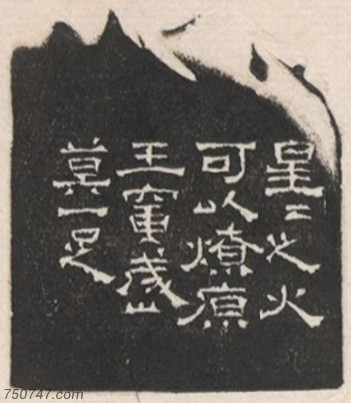 星〻之火
可以燎原
王寅盛
莫一足